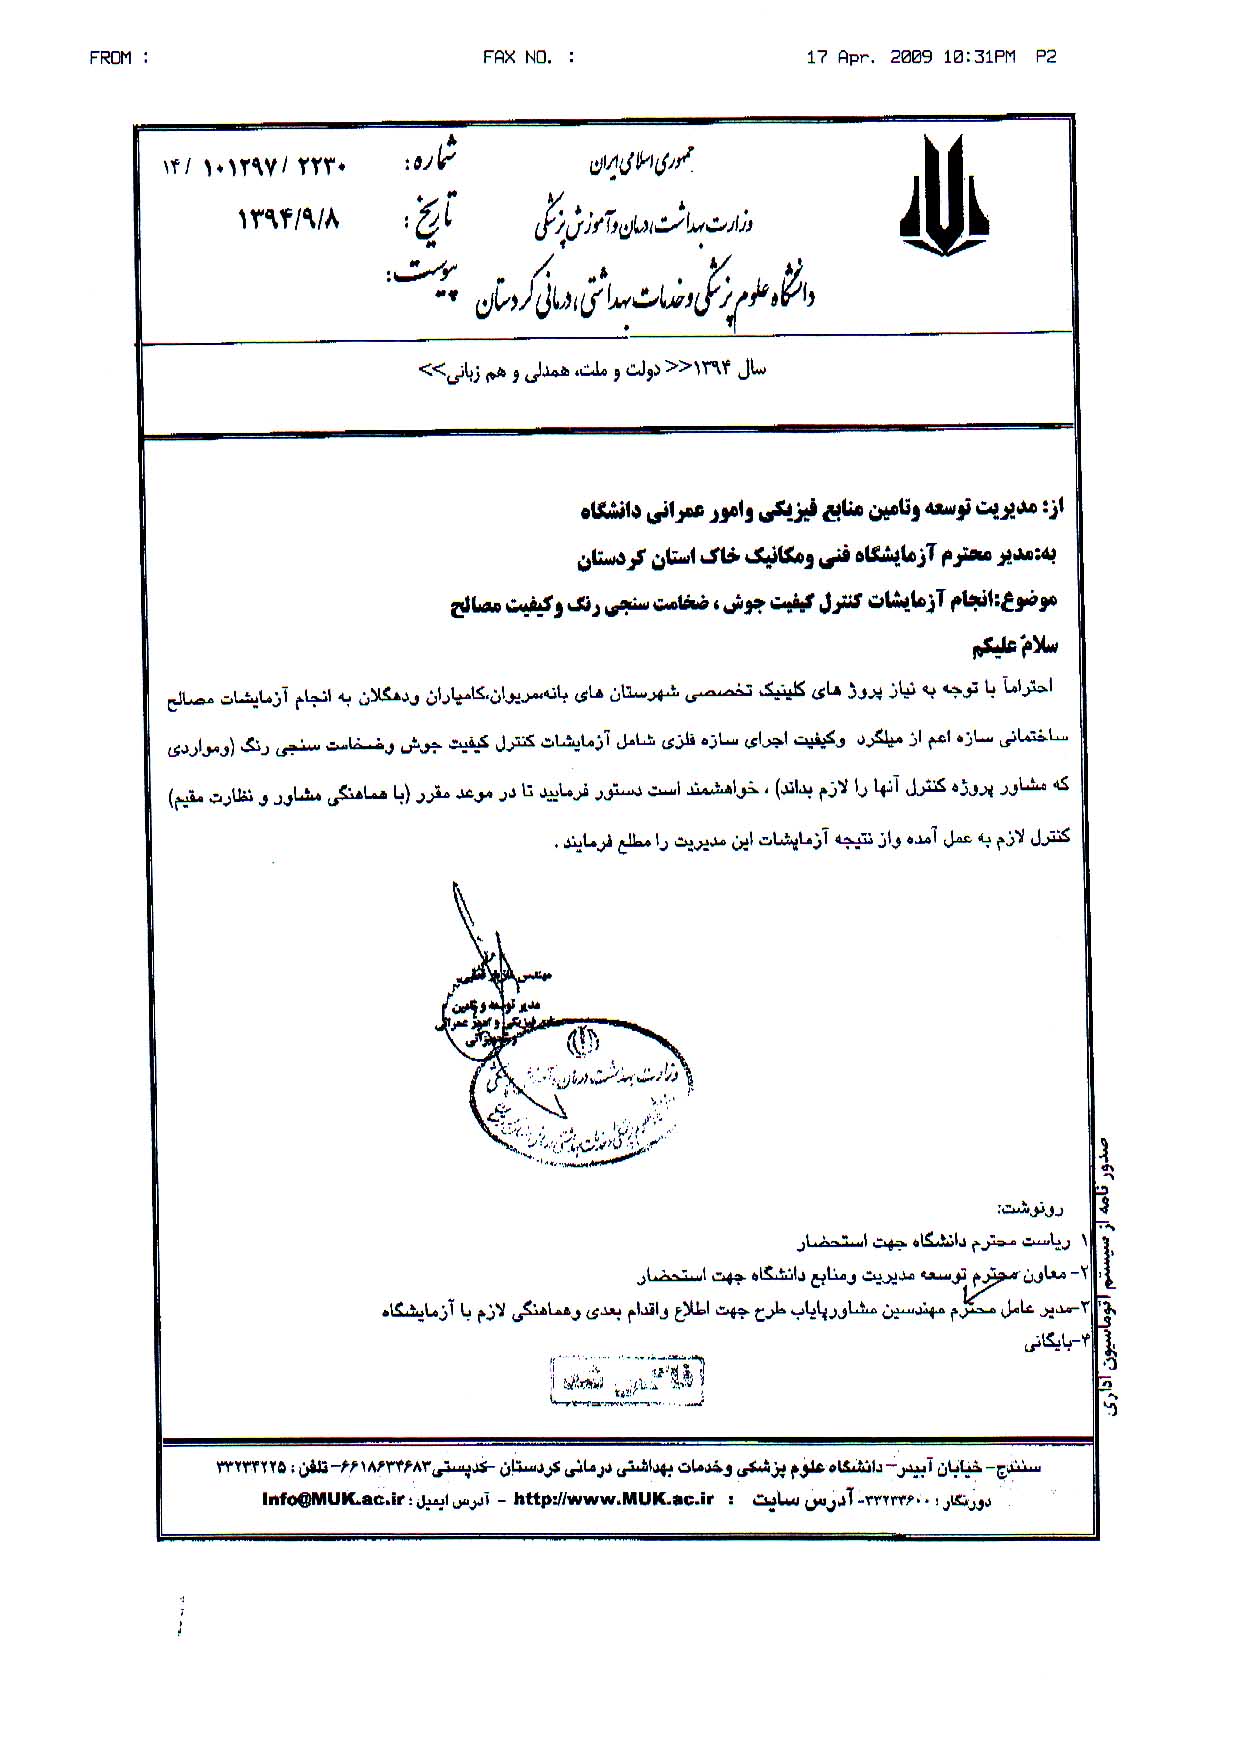 FROM :
FAX NO. :
17 Apr. 2009 10:31PM P2
جمهوری اسلامی ایران
وزارت بهداشت، درمان و آموزش پزشکی
دانشگاه علوم پزشکی و خدمات بهداشتی، درمانی کردستان
شماره: ۱۴/ ۱۰۱۲۹۷/ ۲۲۳۰
تاریخ: ۱۳۹۴/۹/۸
پیوست:
سال ۱۳۹۴<< دولت و ملت، همدلی و هم زبانی>>
از: مدیریت توسعه وتامین منابع فیزیکی وامور عمرانی دانشگاه
به:مدیر محترم آزمایشگاه فنی ومکانیک خاک استان کردستان
موضوع:انجام آزمایشات کنترل کیفیت جوش ، ضخامت سنجی رنگ وکیفیت مصالح
سلام علیکم
احتراماً با توجه به نیاز پروژ های کلینیک تخصصی شهرستان های بانه،مریوان،کامیاران ودهگلان به انجام آزمایشات مصالح
ساختمانی سازه اعم از میلگرد وکیفیت اجرای سازه فلزی شامل آزمایشات کنترل کیفیت جوش وضخامت سنجی رنگ (ومواردی
که مشاور پروژه کنترل آنها را لازم بداند) ، خواهشمند است دستور فرمایید تا در موعد مقرر (با هماهنگی مشاور و نظارت مقیم)
کنترل لازم به عمل آمده واز نتیجه آزمایشات این مدیریت را مطلع فرمایند .
مهندس
مدیر توسعه و تامین
فیزیکی و امور عمرانی
وزارت بهداشت، درمان
رونوشت:
۱ ریاست محترم دانشگاه جهت استحضار
۲- معاون محترم توسعه مدیریت ومنابع دانشگاه جهت استحضار
۳-مدیر عامل محترم مهندسین مشاورپایاب طرح جهت اطلاع واقدام بعدی وهماهنگی لازم با آزمایشگاه
۴-بایگانی
فاکس شد
صدور نامه از سیستم اتوماسیون اداری
سنندج- خیابان آبیدر- دانشگاه علوم پزشکی وخدمات بهداشتی درمانی کردستان -کدپستی۶۶۱۸۶۳۴۶۸۳-تلفن : ۳۳۲۳۴۲۲۵
دورنگار : ۳۳۲۳۳۶۰۰-آدرس سایت : http://www.MUK.ac.ir - آدرس ایمیل : Info@MUK.ac.ir